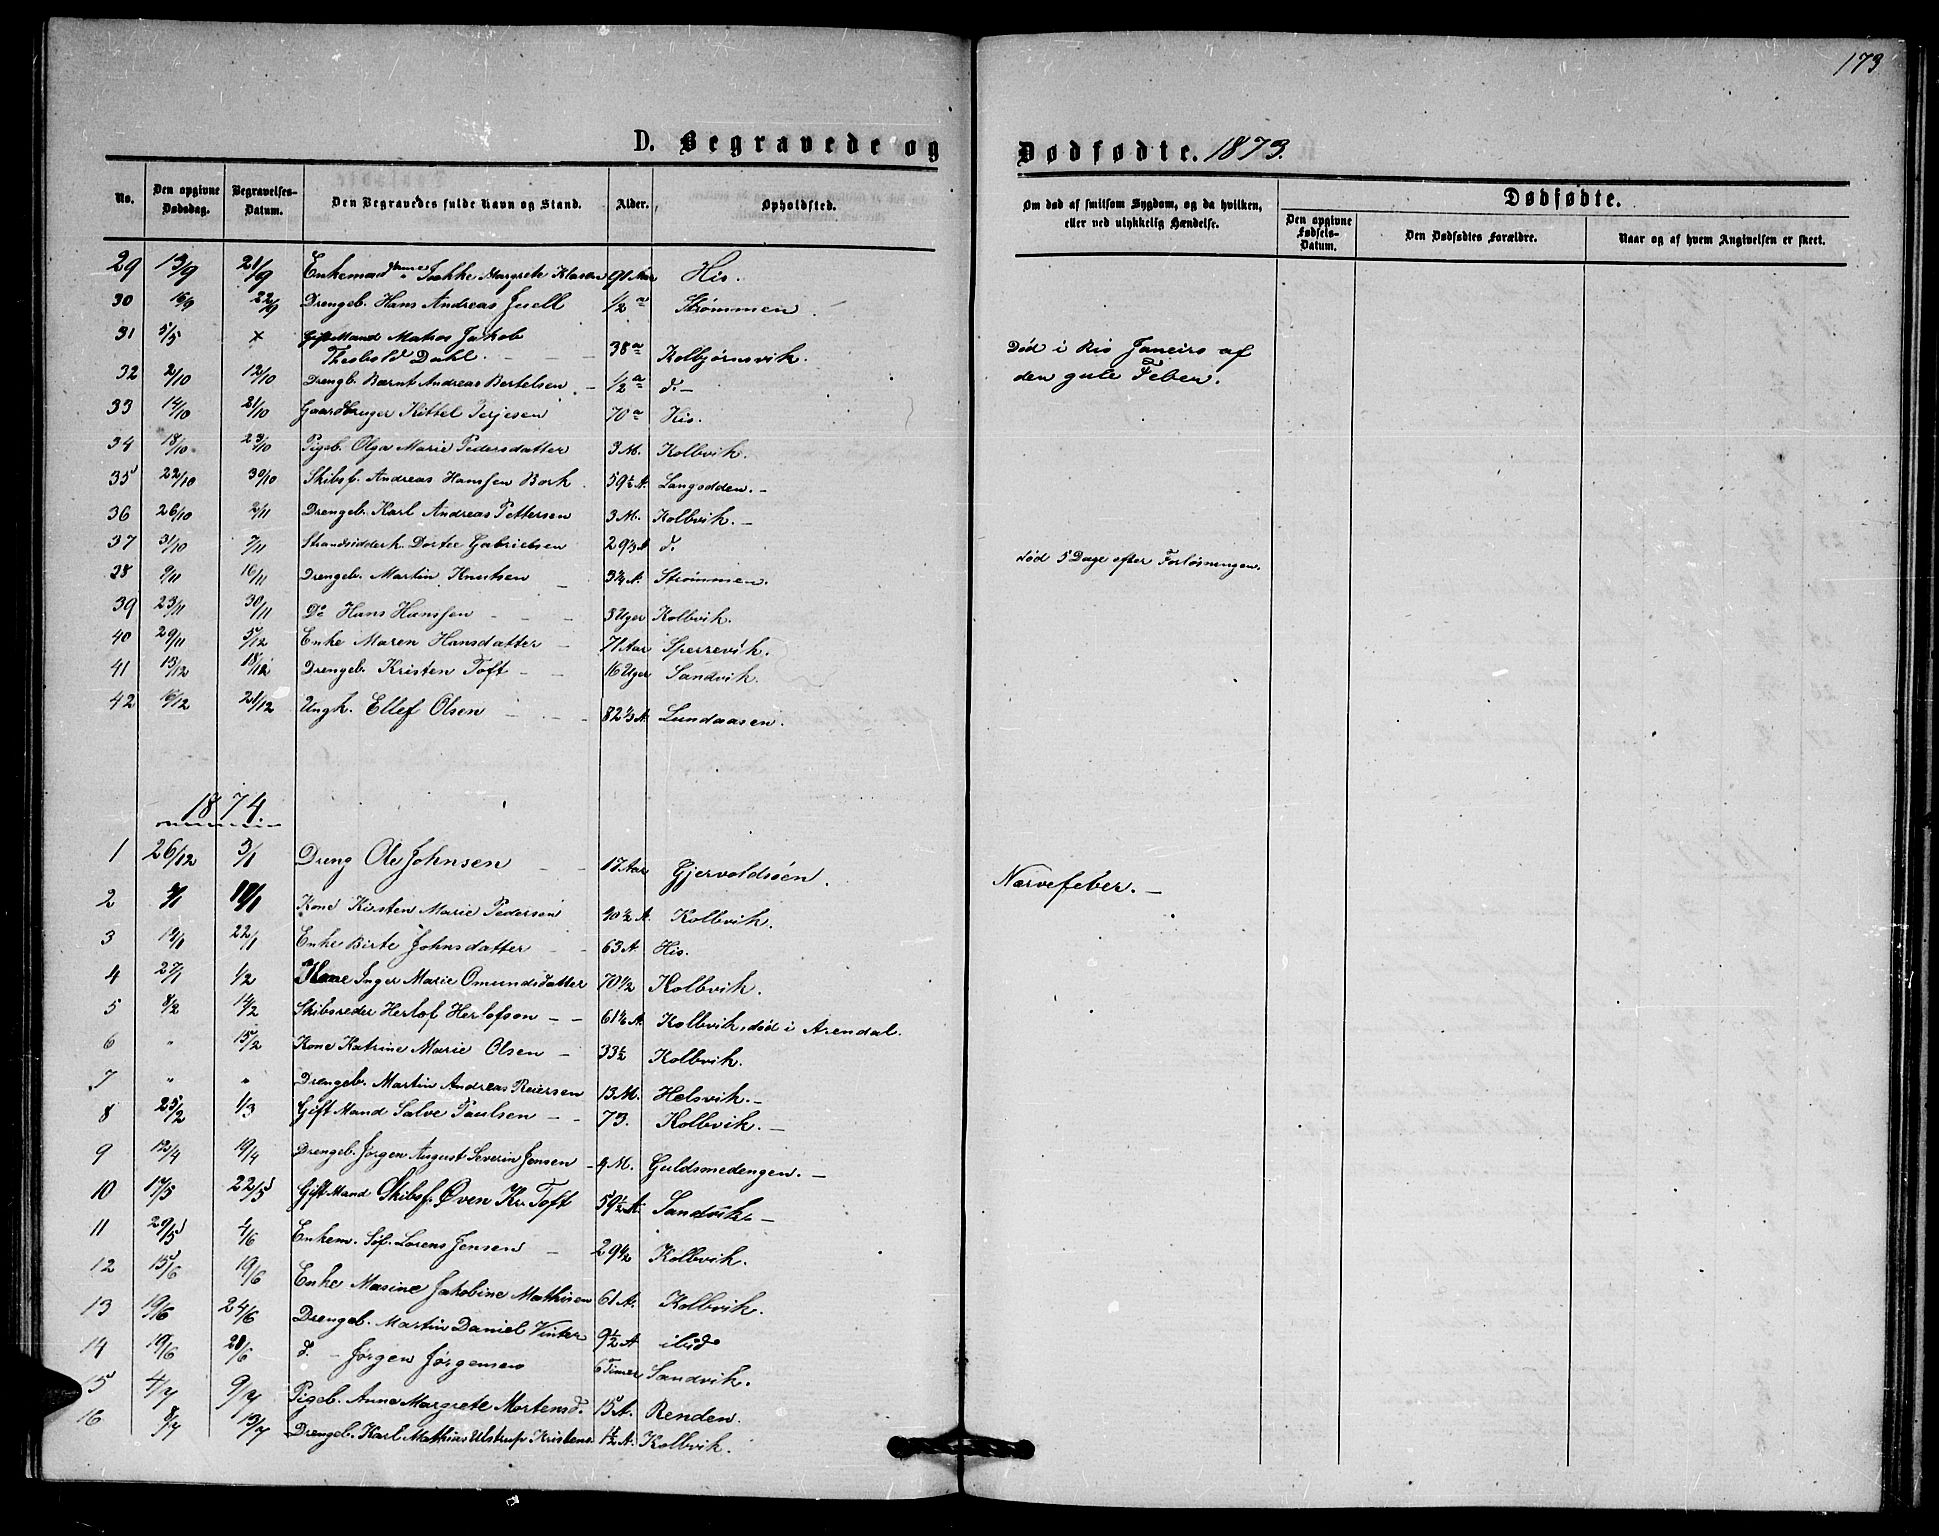 173
D. Begravede og Dødfødte. 1873.
No. Den opgivne Dødsdag. Begravelses-Datum. Den Begravedes fulde Navn og Stand. Alder. Opholdsted. Om død af smitsom Sygdom, og da hvilken, eller ved ulykkelig Hændelse. Dødfødte.
Den opgivne Fødsels-Datum. Den Dødfødtes Forældre. Naar og af hvem Angivelsen er skeet.
29 13/9 21/9 Margrete Klasen 91 Aar His.
30 16/9 22/9 Drengeb. Hans Andreas Juell 1/2 a Strømmen.
31 5/5 x Gift Mand Matros Jakob
Theobold Dahl. 38 a Kolbjørnsvik. Død i Rio Janeiro af
den gule Feber.
32 2/10 12/10 Drengb. Bærnt Andreas Bertelsen 1/2 a d.
33 14/10 21/10 Gaardbruger Kittel Terjesen 70 a His.
34 18/10 23/10 Pigeb. Olga Marie Pedersdatter 3 M. Kolbvik.
35 22/10 30/10 Skibsf. Andreas Hanssen Bork 59 1/2 A. Langodden.
36 26/10 2/11 Drengeb. Karl Andreas Pettersen 3 M. Kolbvik.
37 31/10 7/11 Strandsidderk. Dortee Gabrielsen 29 A d. død 5 Dage efter Forløsningen.
38 9/11 16/11 Drengeb. Martin Knutsen A. Strømmen.
39 23/11 30/11 Do Hans Hanssen 3 Uger Kolbvik.
40 29/11 5/12 Enke Maren Hansdatter 71 Aar Sperrevik.
41 13/12 18/12 Drengeb. Kristen Toft 16 Uger Sandvik.
42 16/12 21/12 Ungk. Ellef Olsen 82 1/3 A. Lundaasen.
1874.
1 26/12 3/1 Dreng Ole Johnsen 17 Aar Gjervoldsøen. Nervefeber.
2 Kone Kirsten Marie Pedersen 40 1/2 A. Kolbvik.
3 22/1 Enke Birte Johnsdatter 63 A. His.
4 27/1 1/2 Kone Inger Marie Omundsdatter 70 1/2 Kolbvik.
5 8/2 14/2 Skibsreder Herlof Herlofson 61 1/2 A. Kolbvik, død i Arendal.
6 " 15/2 Kone Katrine Marie Olsen 33 1/2 Kolbvik.
7 " " Drengeb. Martin Andreas Reiersen 13 M. Helsvik.
8 25/2 1/3 Gift Mand Salve Paulsen 73. Kolbvik.
9 12/4 19/4 Drengeb. Jørgen August Severin Jensen 9 M. Guldsmedengen.
10 17/5 22/5 Gift Mand Skibsf. Øven Kr. Toft 59 1/2 A. Sandvik.
11 29/5 4/6 Enkem. Søf. Lorens Jensen 29 1/2 Kolbvik.
12 15/6 19/6 Enke Masine Jakobine Mathisen 61 A. Kolbvik.
13 19/6 24/6 Drengeb. Martin Daniel Vinter 9 1/2 A ibid
14 19/6 28/6 d. Jørgen Jørgensen 6 Timer Sandvik.
15 4/7 9/7 Pigeb. Anne Margrete Mortensd. 15 A. Renden.
16 8/7 13/7 Drengeb. Karl Mathias Ulstrup Kristens. 1 1/2 A. Kolbvik.